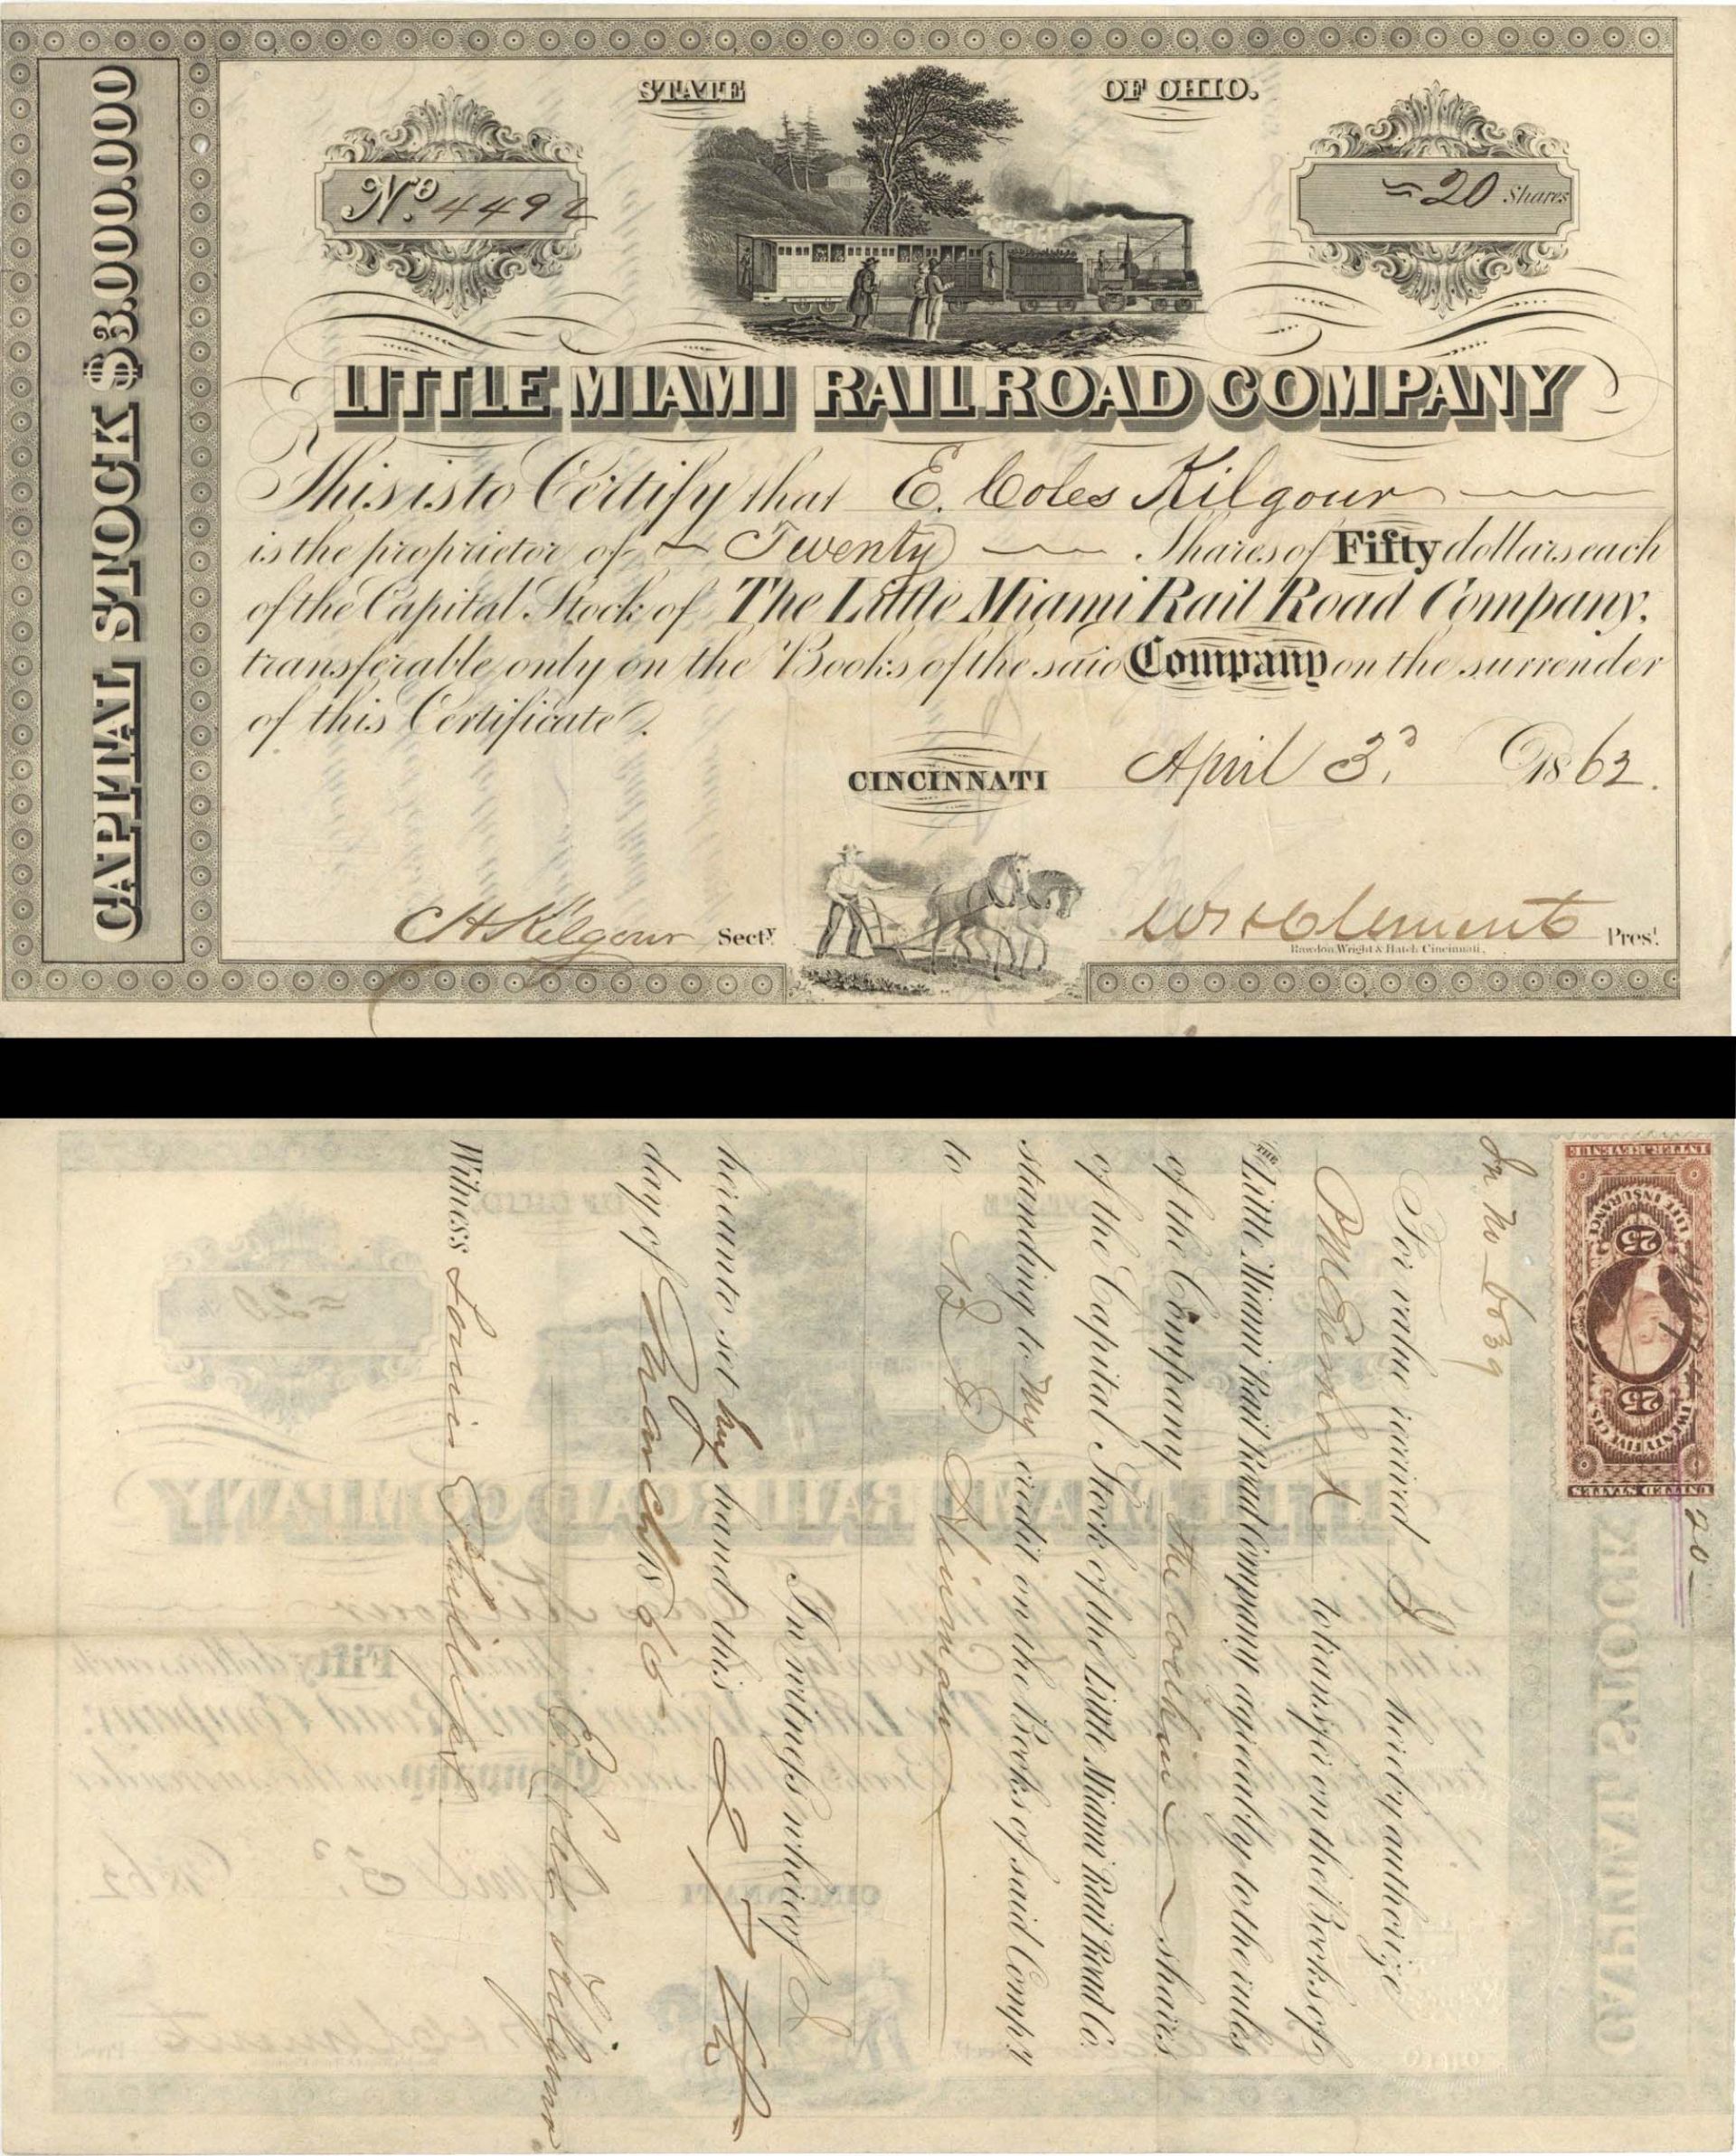 CAPITAL STOCK $3.000.000
STATE OF OHIO.
No. 4492
=20 Shares
LITTLE MIAMI RAIL ROAD COMPANY
This is to Certify that E. Coles Kilgour
is the proprietor of Twenty Shares of Fifty dollars each
of the Capital Stock of The Little Miami Rail Road Company,
transferable only on the Books of the said Company on the surrender
of this Certificate.
CINCINNATI April 3d, 1862.
CH Kilgour Secty.
W H Clement Prest.
Rawdon, Wright & Hatch Cincinnati.
UNITED STATES
TWENTY FIVE CTS.
25
25
LIFE INSURANCE
INTER. REVENUE
20
No 6039
For value received I hereby authorize
to transfer on the Books of
THE Little Miami Rail Road Company, agreeably to the rules
of the Company shares
of the Capital Stock of the Little Miami Rail Road Co.
standing to my credit on the Books of said Compy.
to Hinman
In witness whereof I
hereunto set my hand this
day of March 1866
E. Coles Kilgour
Witness Louis Phillips